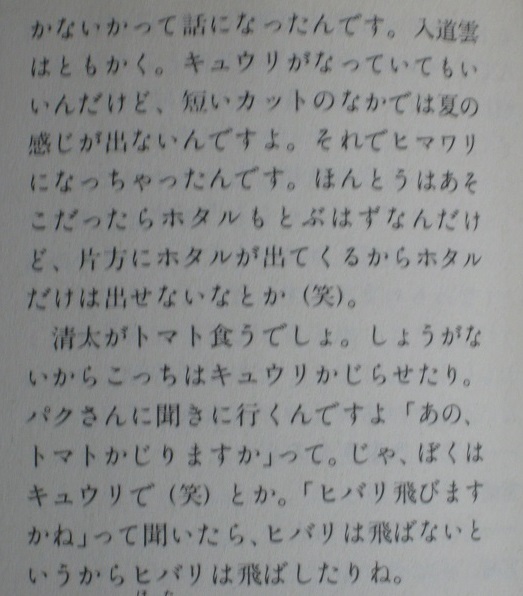 かないかって話になったんです。入道雲
はともかく。キュウリがなっていてもい
いんだけど、短いカットのなかでは夏の
感じが出ないんですよ。それでヒマワリ
になっちゃったんです。ほんとうはあそ
こだったらホタルもとぶはずなんだけ
ど、片方にホタルが出てくるからホタル
だけは出せないなとか（笑）。
　清太がトマト食うでしょ。しょうがな
いからこっちはキュウリかじらせたり。
パクさんに聞きに行くんですよ「あの、
トマトかじりますか」って。じゃ、ぼくは
キュウリで（笑）とか。「ヒバリ飛びます
かね」って聞いたら、ヒバリは飛ばないと
いうからヒバリは飛ばしたりね。